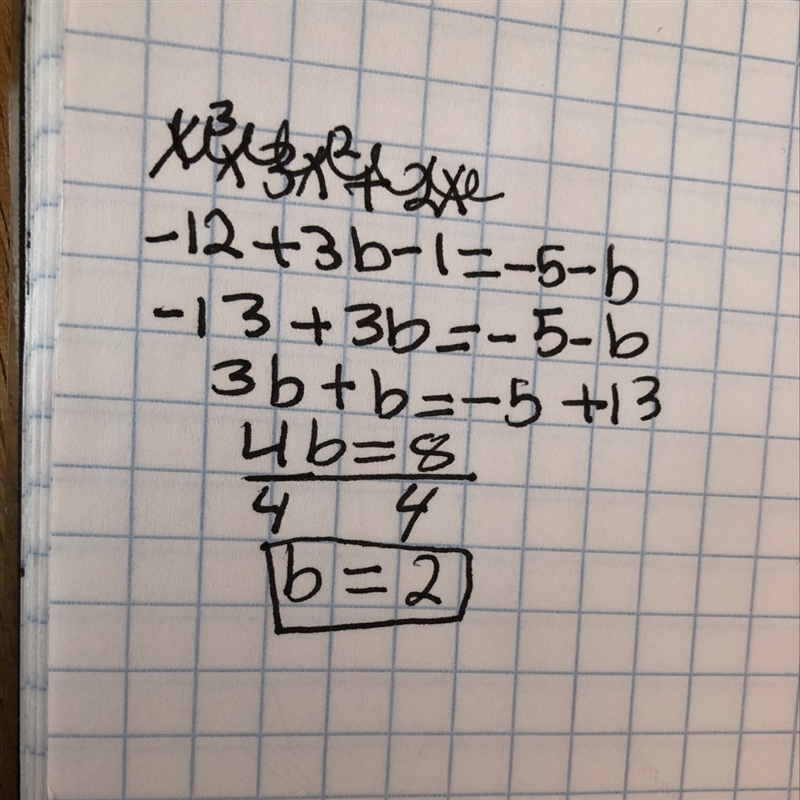 -12 + 3b - 1 = -5 - b
-13 + 3b = -5 - b
3b + b = -5 + 13
4b = 8
4 4
b = 2